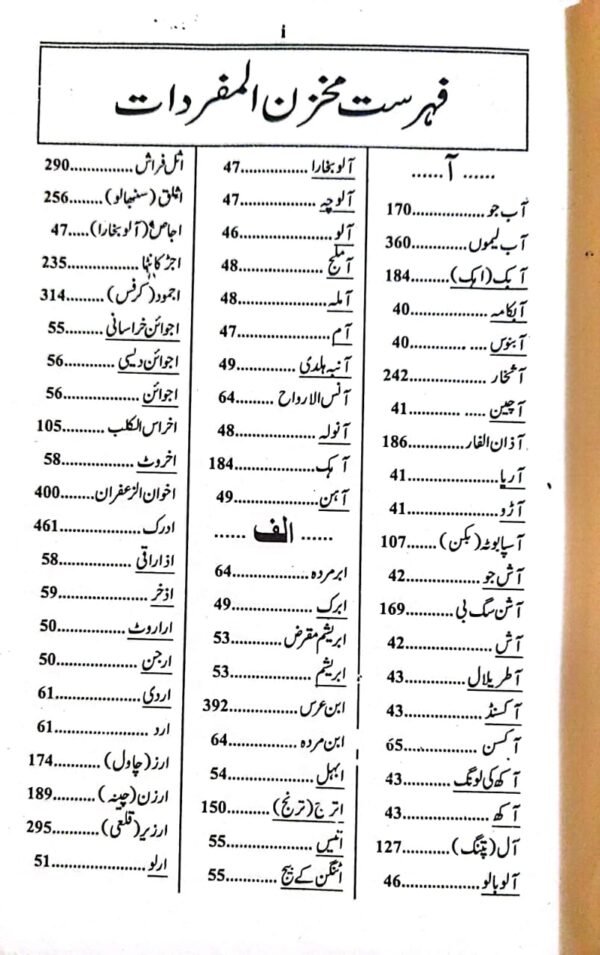 i
فہرست مخزن المفردات
...... آ ......
آب جو.................170
آب لیموں.............360
آبک (اہک).........184
آبکامہ..................40
آبنوس..... ...........40
آشخار..................242
آچین..... ............41
آذان الفار.............186
آریا......................41
آڑو......................41
آسپابوٹہ (بکن).......107
آش جو.................42
آشن سگ بی..........169
آش......................42
آطریلال...............43
آکسنڈ..................43
آکسن...................65
آکھ کی لونگ..........43
آکھ......................43
آل (پتنگ)...........127
آلوبالو...................46
آلوبخارا.................47
آلوچہ....................47
آلو.......................46
آملج.....................48
آملہ.....................48
آم.......................47
آنبہ ہلدی..............49
آنس الارواح.........64
آنولہ....................48
آہک....................184
آہن.....................49
...... الف ......
ابر مردہ.................64
ابرک....................49
ابریشم مقرض..........53
ابریشم...................53
ابن عرس...............392
ابن مردہ................64
ابہل.....................54
اترج (ترنج)..........150
اتیس....................55
اٹنگن کے بیج...........55
اثل فراش..............290
اثلق (سنبھالو).........256
اجاص (آلوبخارا).....47
اجڑ کانٹہا..............235
اجمود (کرفس).......314
اجوائن خراسانی........55
اجوائن دیسی............56
اجوائن..................56
اخراس الکلب.........105
اخروٹ.................58
اخوان الزعفران.......400
ادرک...................461
اذاراقی..................58
اذخر.....................59
اراروٹ.................50
ارجن....................50
اردی....................61
ارد ......................61
ارز (چاول)...........174
ارزن (چینہ)..........189
ارزیر (قلعی)..........295
ارلو......................51